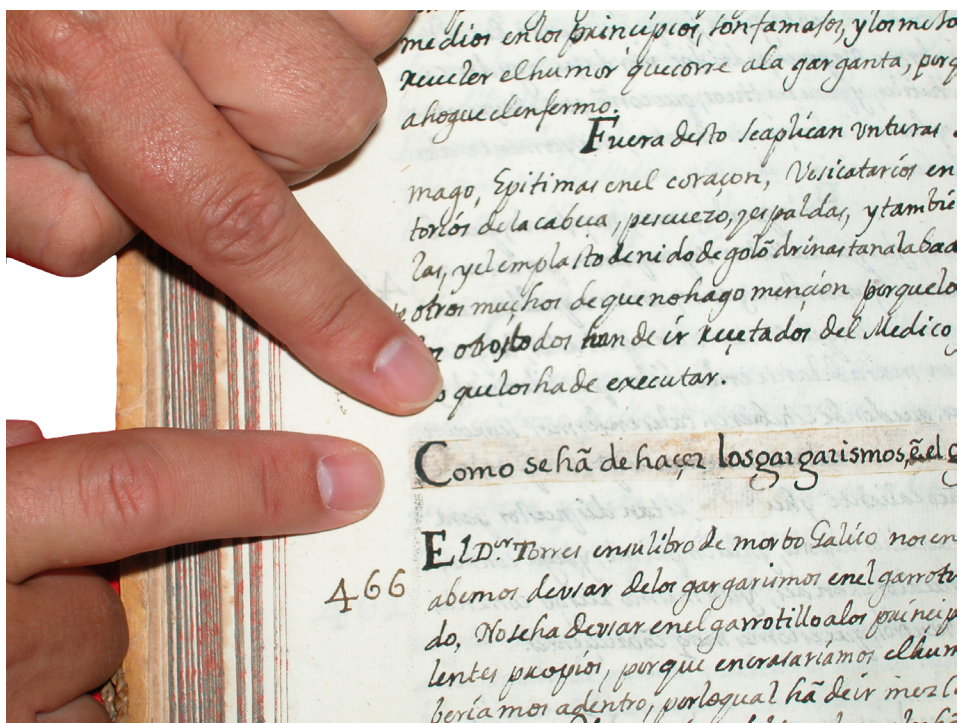 medios enlos principios, son famosos, ylos
reveler elhumor quecorre ala garganta, porq
ahogue elenfermo.
Fuera desto seaplican vnturas
mago, Epitimas enel coraçon, Vesicatarios en
torios dela cabeça, pescuezo, yespaldas, ytambie
las, yelemplasto denido degolõdrinas tanalabad
otros muchos de quenohago mencion porquelo
otros, todos han de ir recetados del Medico
queloshade executar.
Como sehã dehaçer losgargarismos, ẽel g
El Dor Torres ensulibro de morbo Galico nosen
abemos deusar delos gargarismos enelgarroti
do, Noseha deusar enelgarrotilloalos principi
lentes propios, porque encrasariamos elhum
beriamos adentro, porloqual hã deir mezcl
466